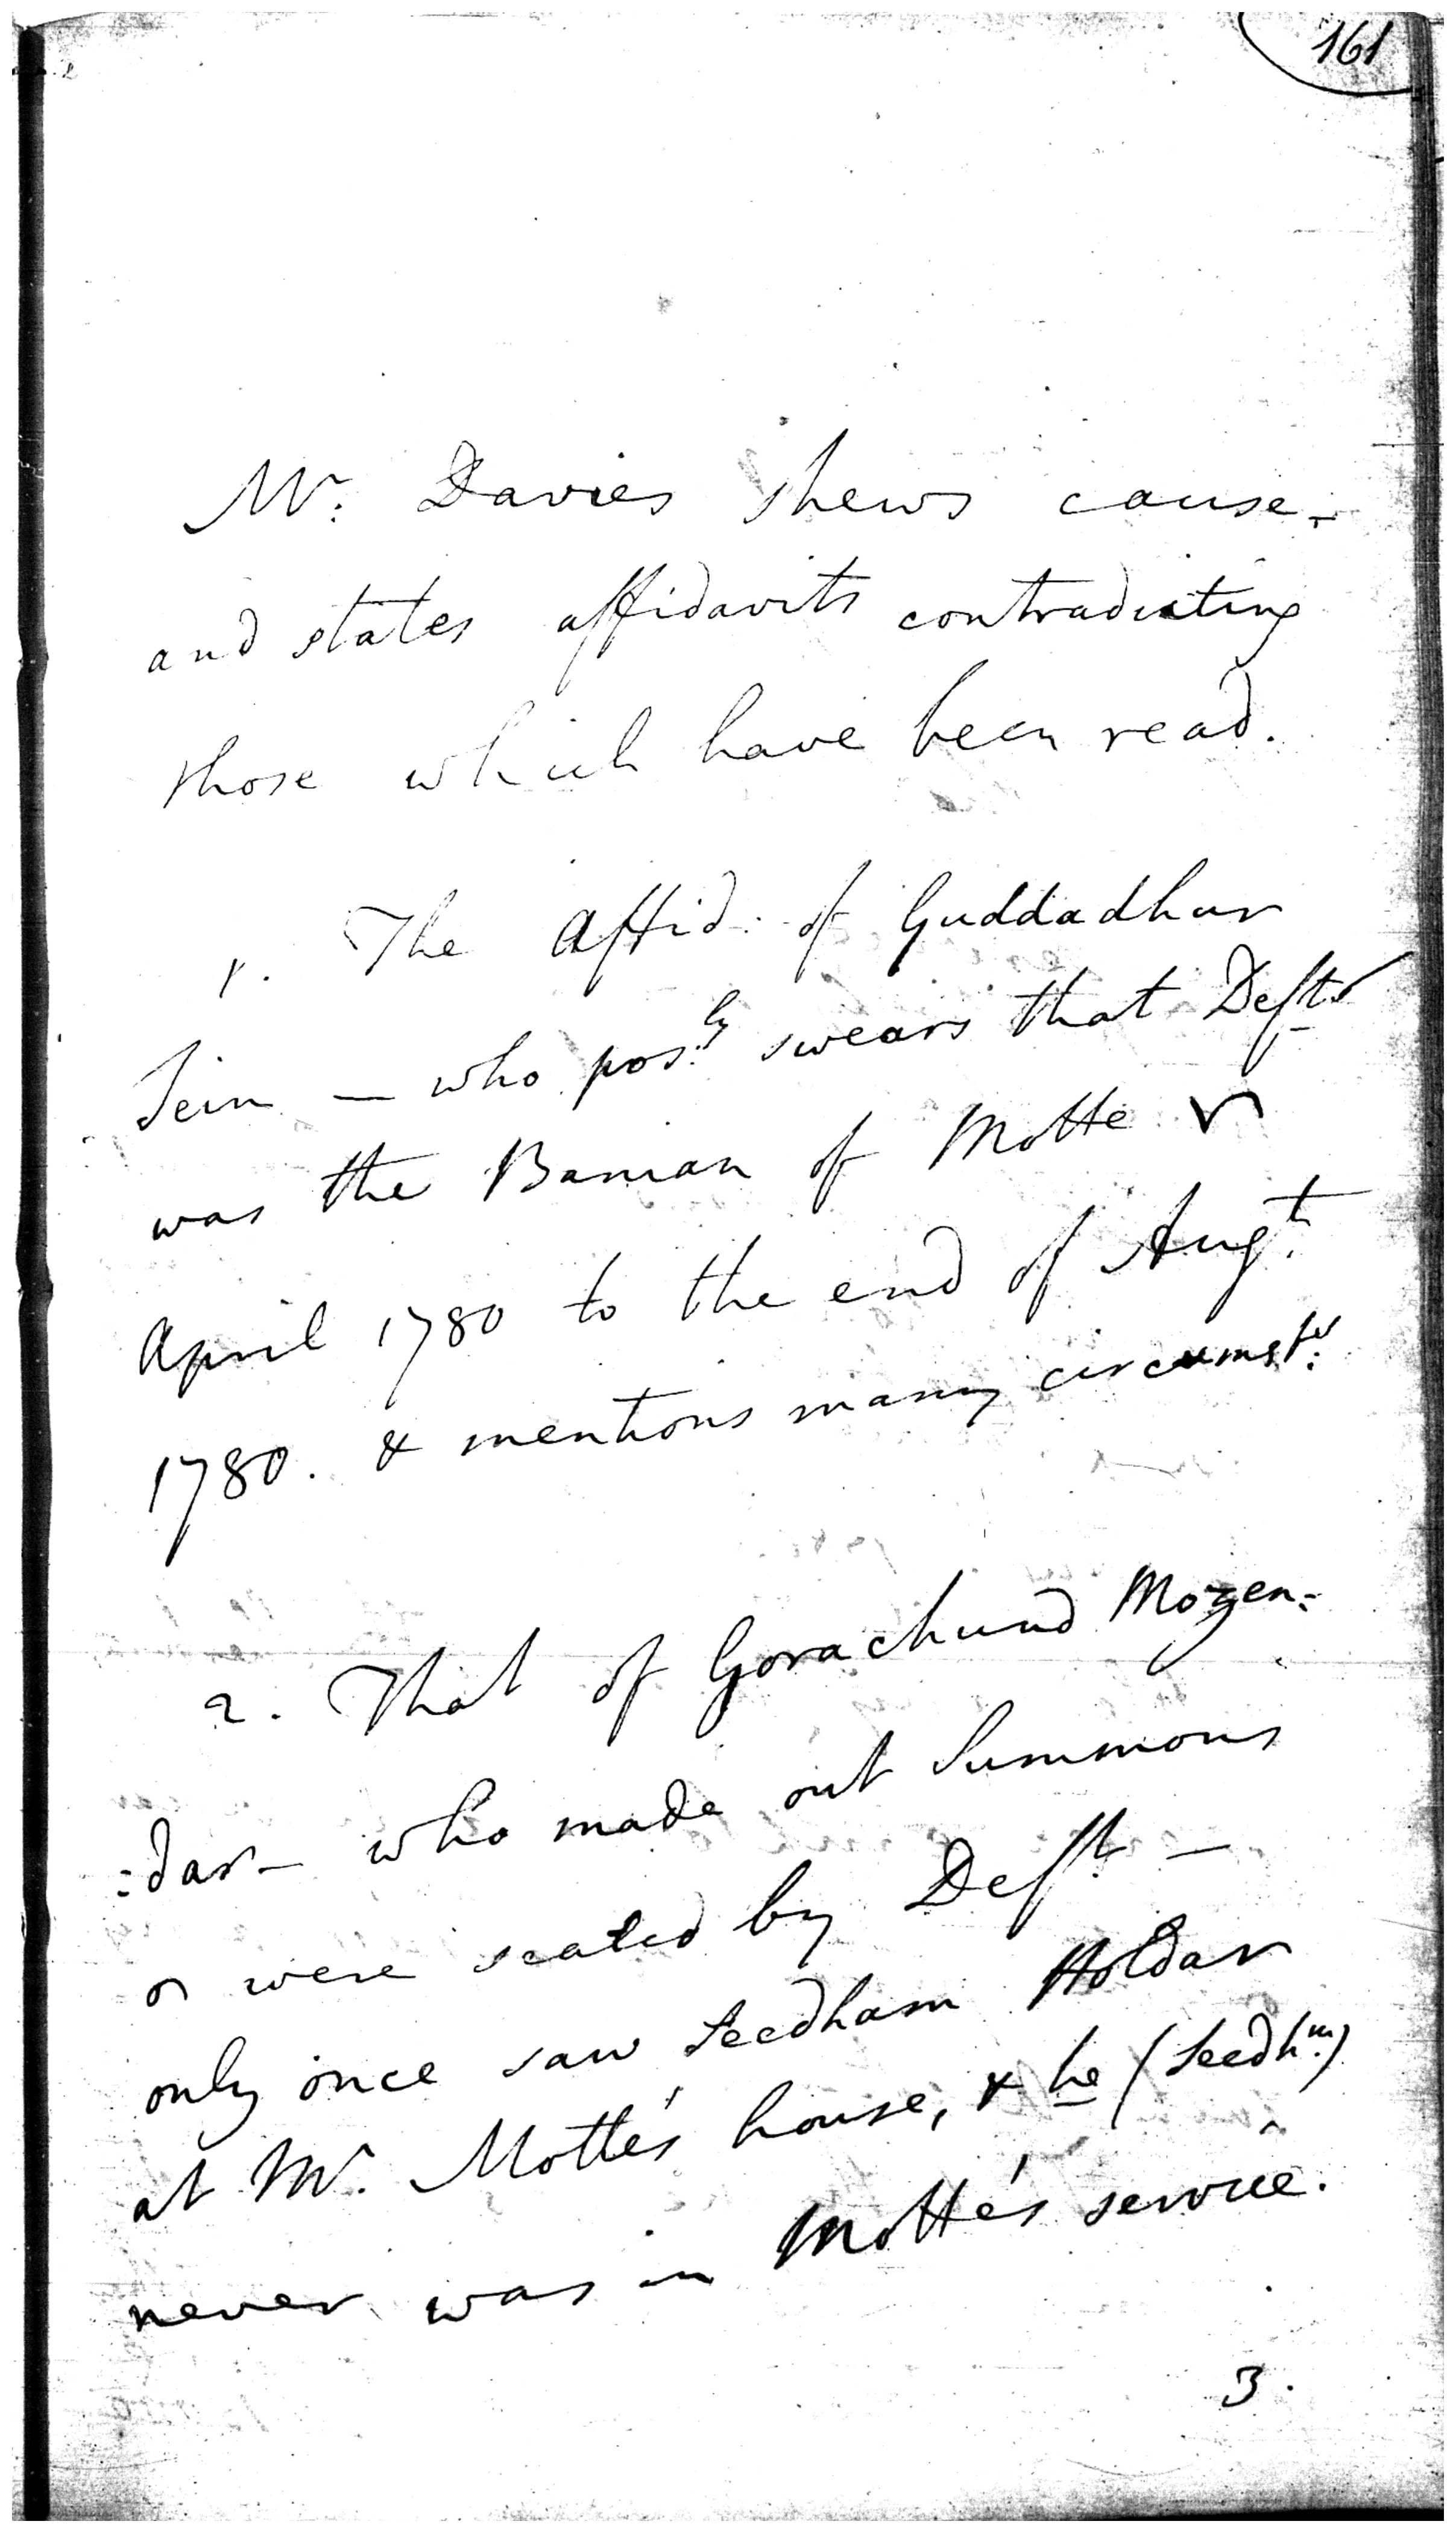 161
Mr. Davies shews cause -
and states affidavits contradicting
those which have been read.
1. The Affid: of Guddadhur
Sein — who pos:ly swears that Deft.
was the Banian of Motte
April 1780 to the end of Augt.
1780. & mentions many circumsts.
2. That of Gorachund Mozen=
=dar — who made out Summons
were sealed by Deft. —
only once saw Seedham Holdar
at Mr. Motte's house, & he (Seedhm.)
never was in Motte's service.
3.